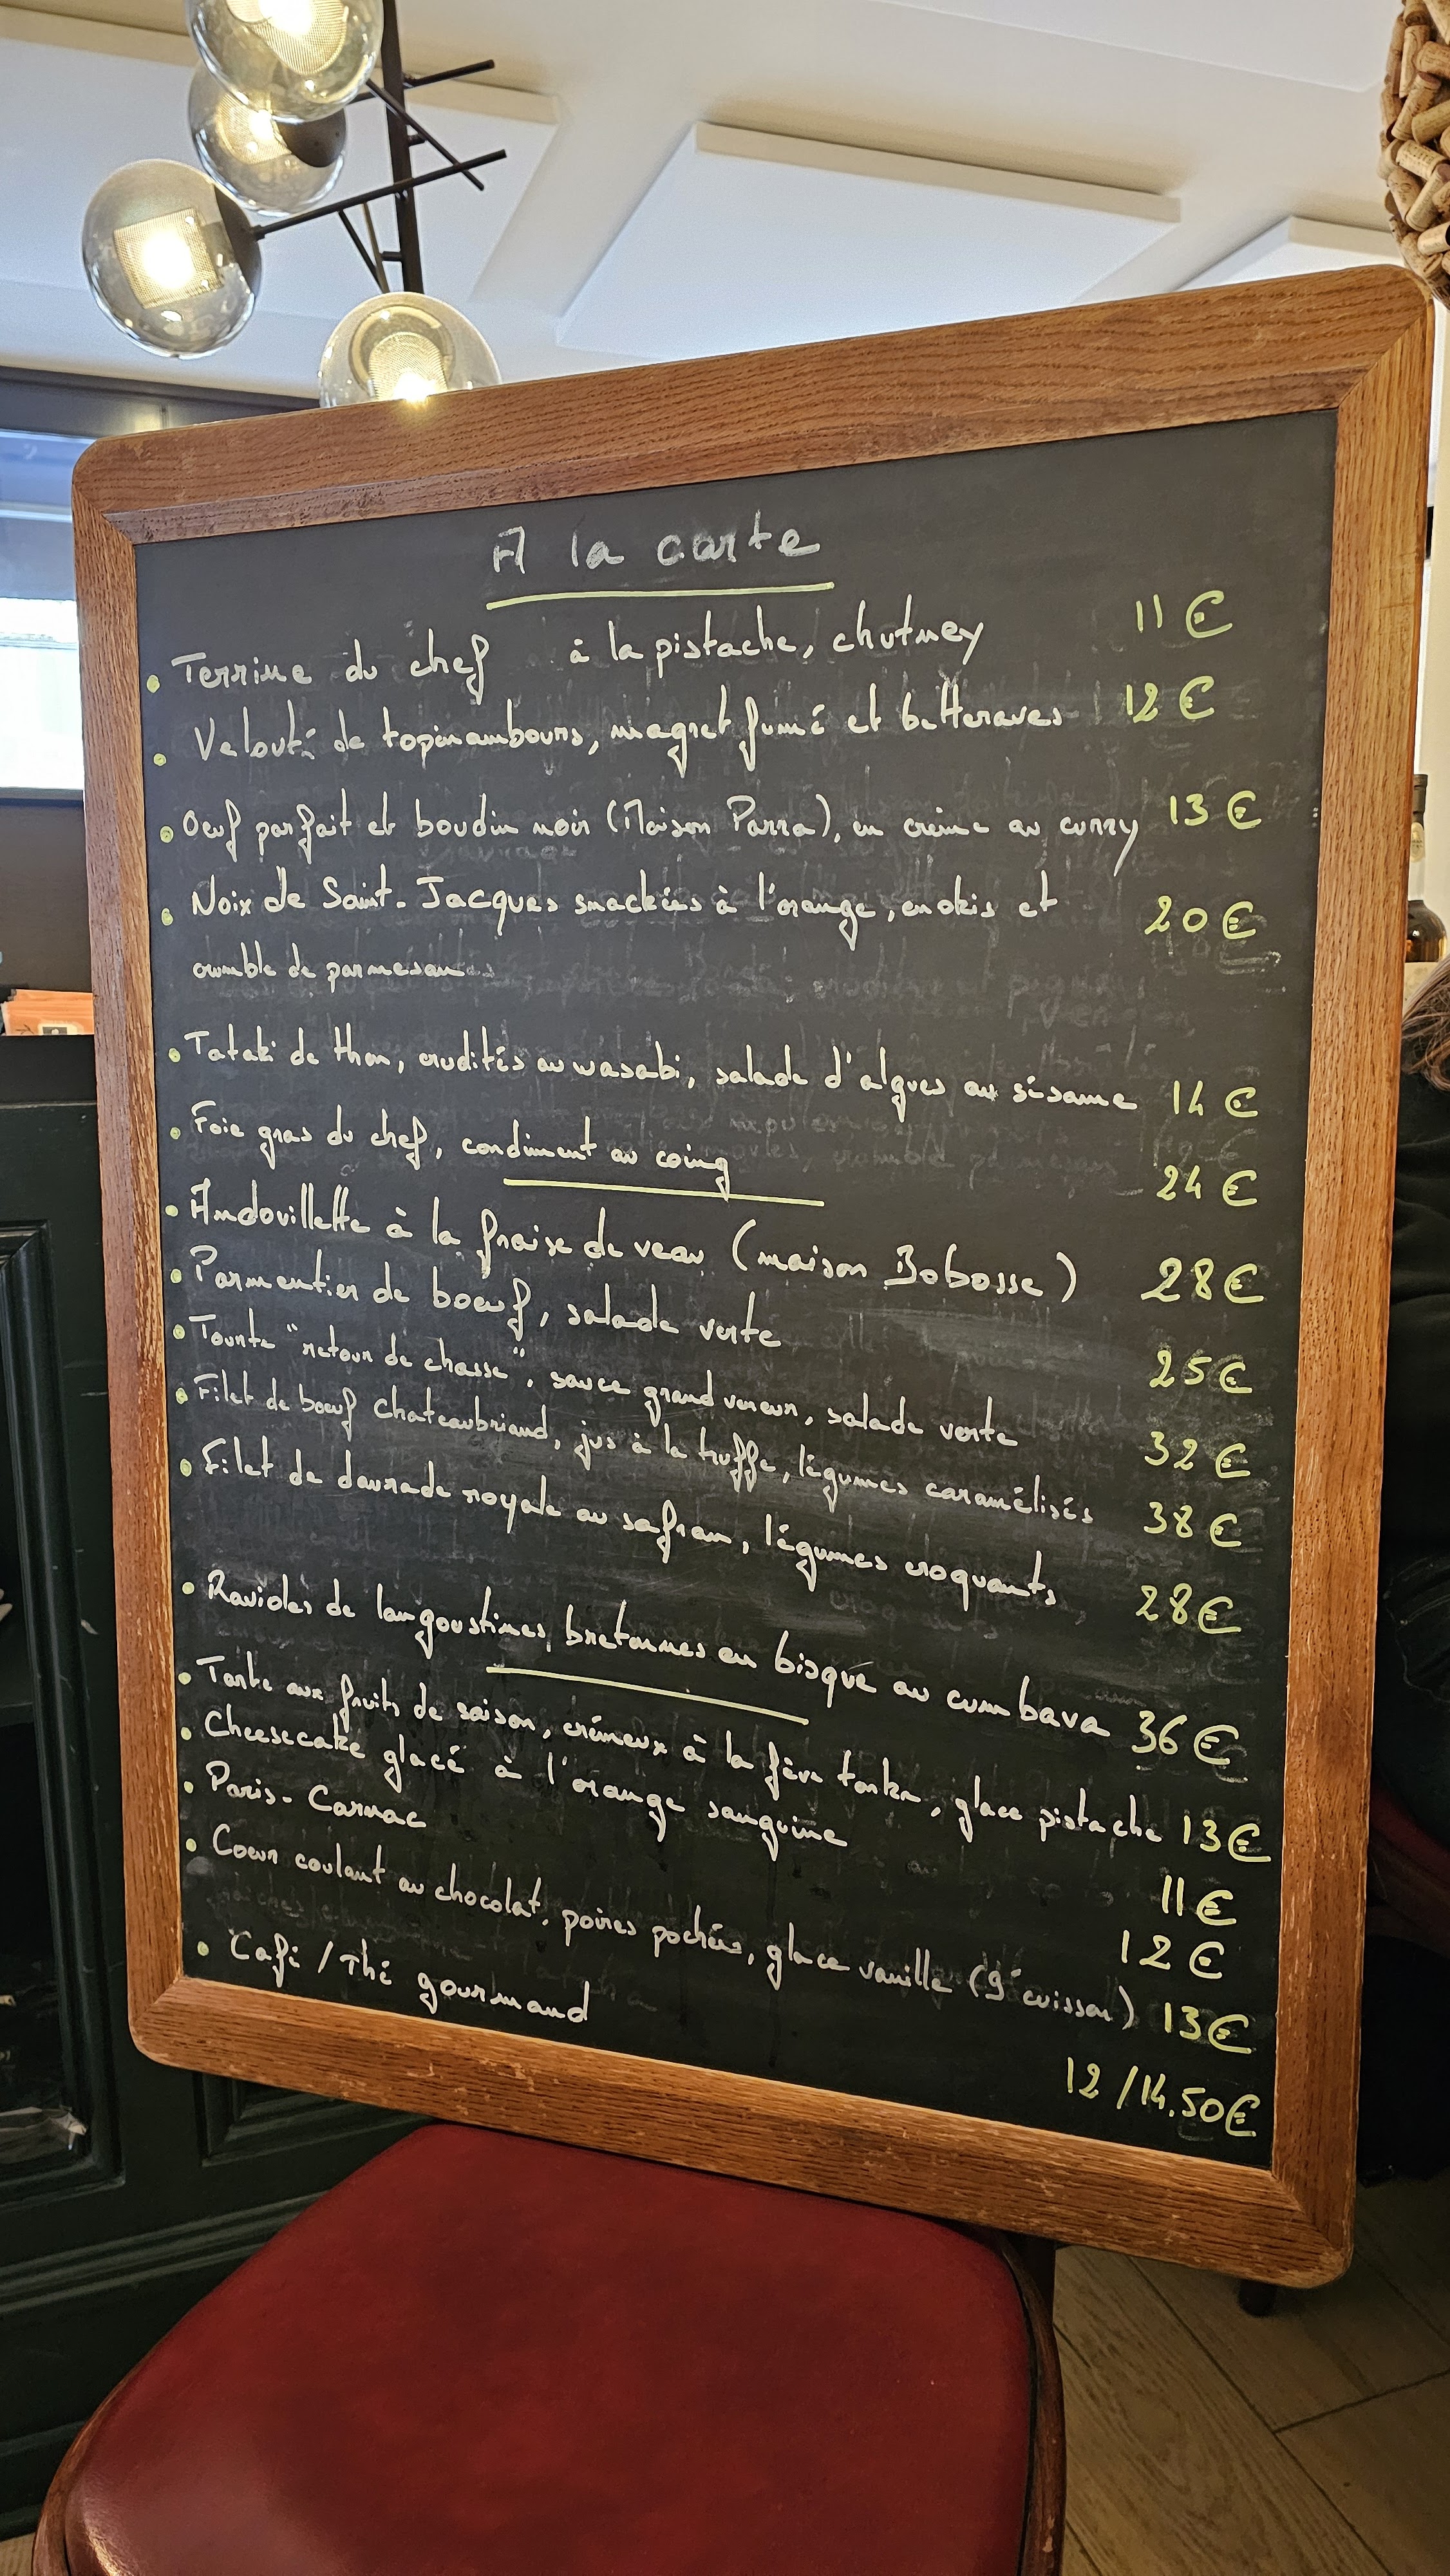 A la carte
Terrine du chef à la pistache, chutney 11€
Velouté de topinambours, magret fumé et betteraves 12€
Oeuf parfait et boudin noir (Maison Parra), en crème au curry 13€
Noix de Saint-Jacques snackées à l'orange, enokis et 20€
crumble de parmesan
Tataki de thon, crudités au wasabi, salade d'algues au sésame 14€
Foie gras du chef, condiment au coing 24€
Andouillette à la fraise de veau (maison Bobosse) 28€
Parmentier de boeuf, salade verte 25€
Tourte "retour de chasse", sauce grand veneur, salade verte 32€
Filet de boeuf Chateaubriand, jus à la truffe, légumes caramélisés 38€
Filet de daurade royale au safran, légumes croquants 28€
Ravioles de langoustines bretonnes en bisque au cumbava 36€
Tarte aux fruits de saison, crémeux à la fève tonka, glace pistache 13€
Cheesecake glacé à l'orange sanguine 11€
Paris-Carnac 12€
Coeur coulant au chocolat, poires pochées, glace vanille (9' cuisson) 13€
Café / Thé gourmand 12/14.50€